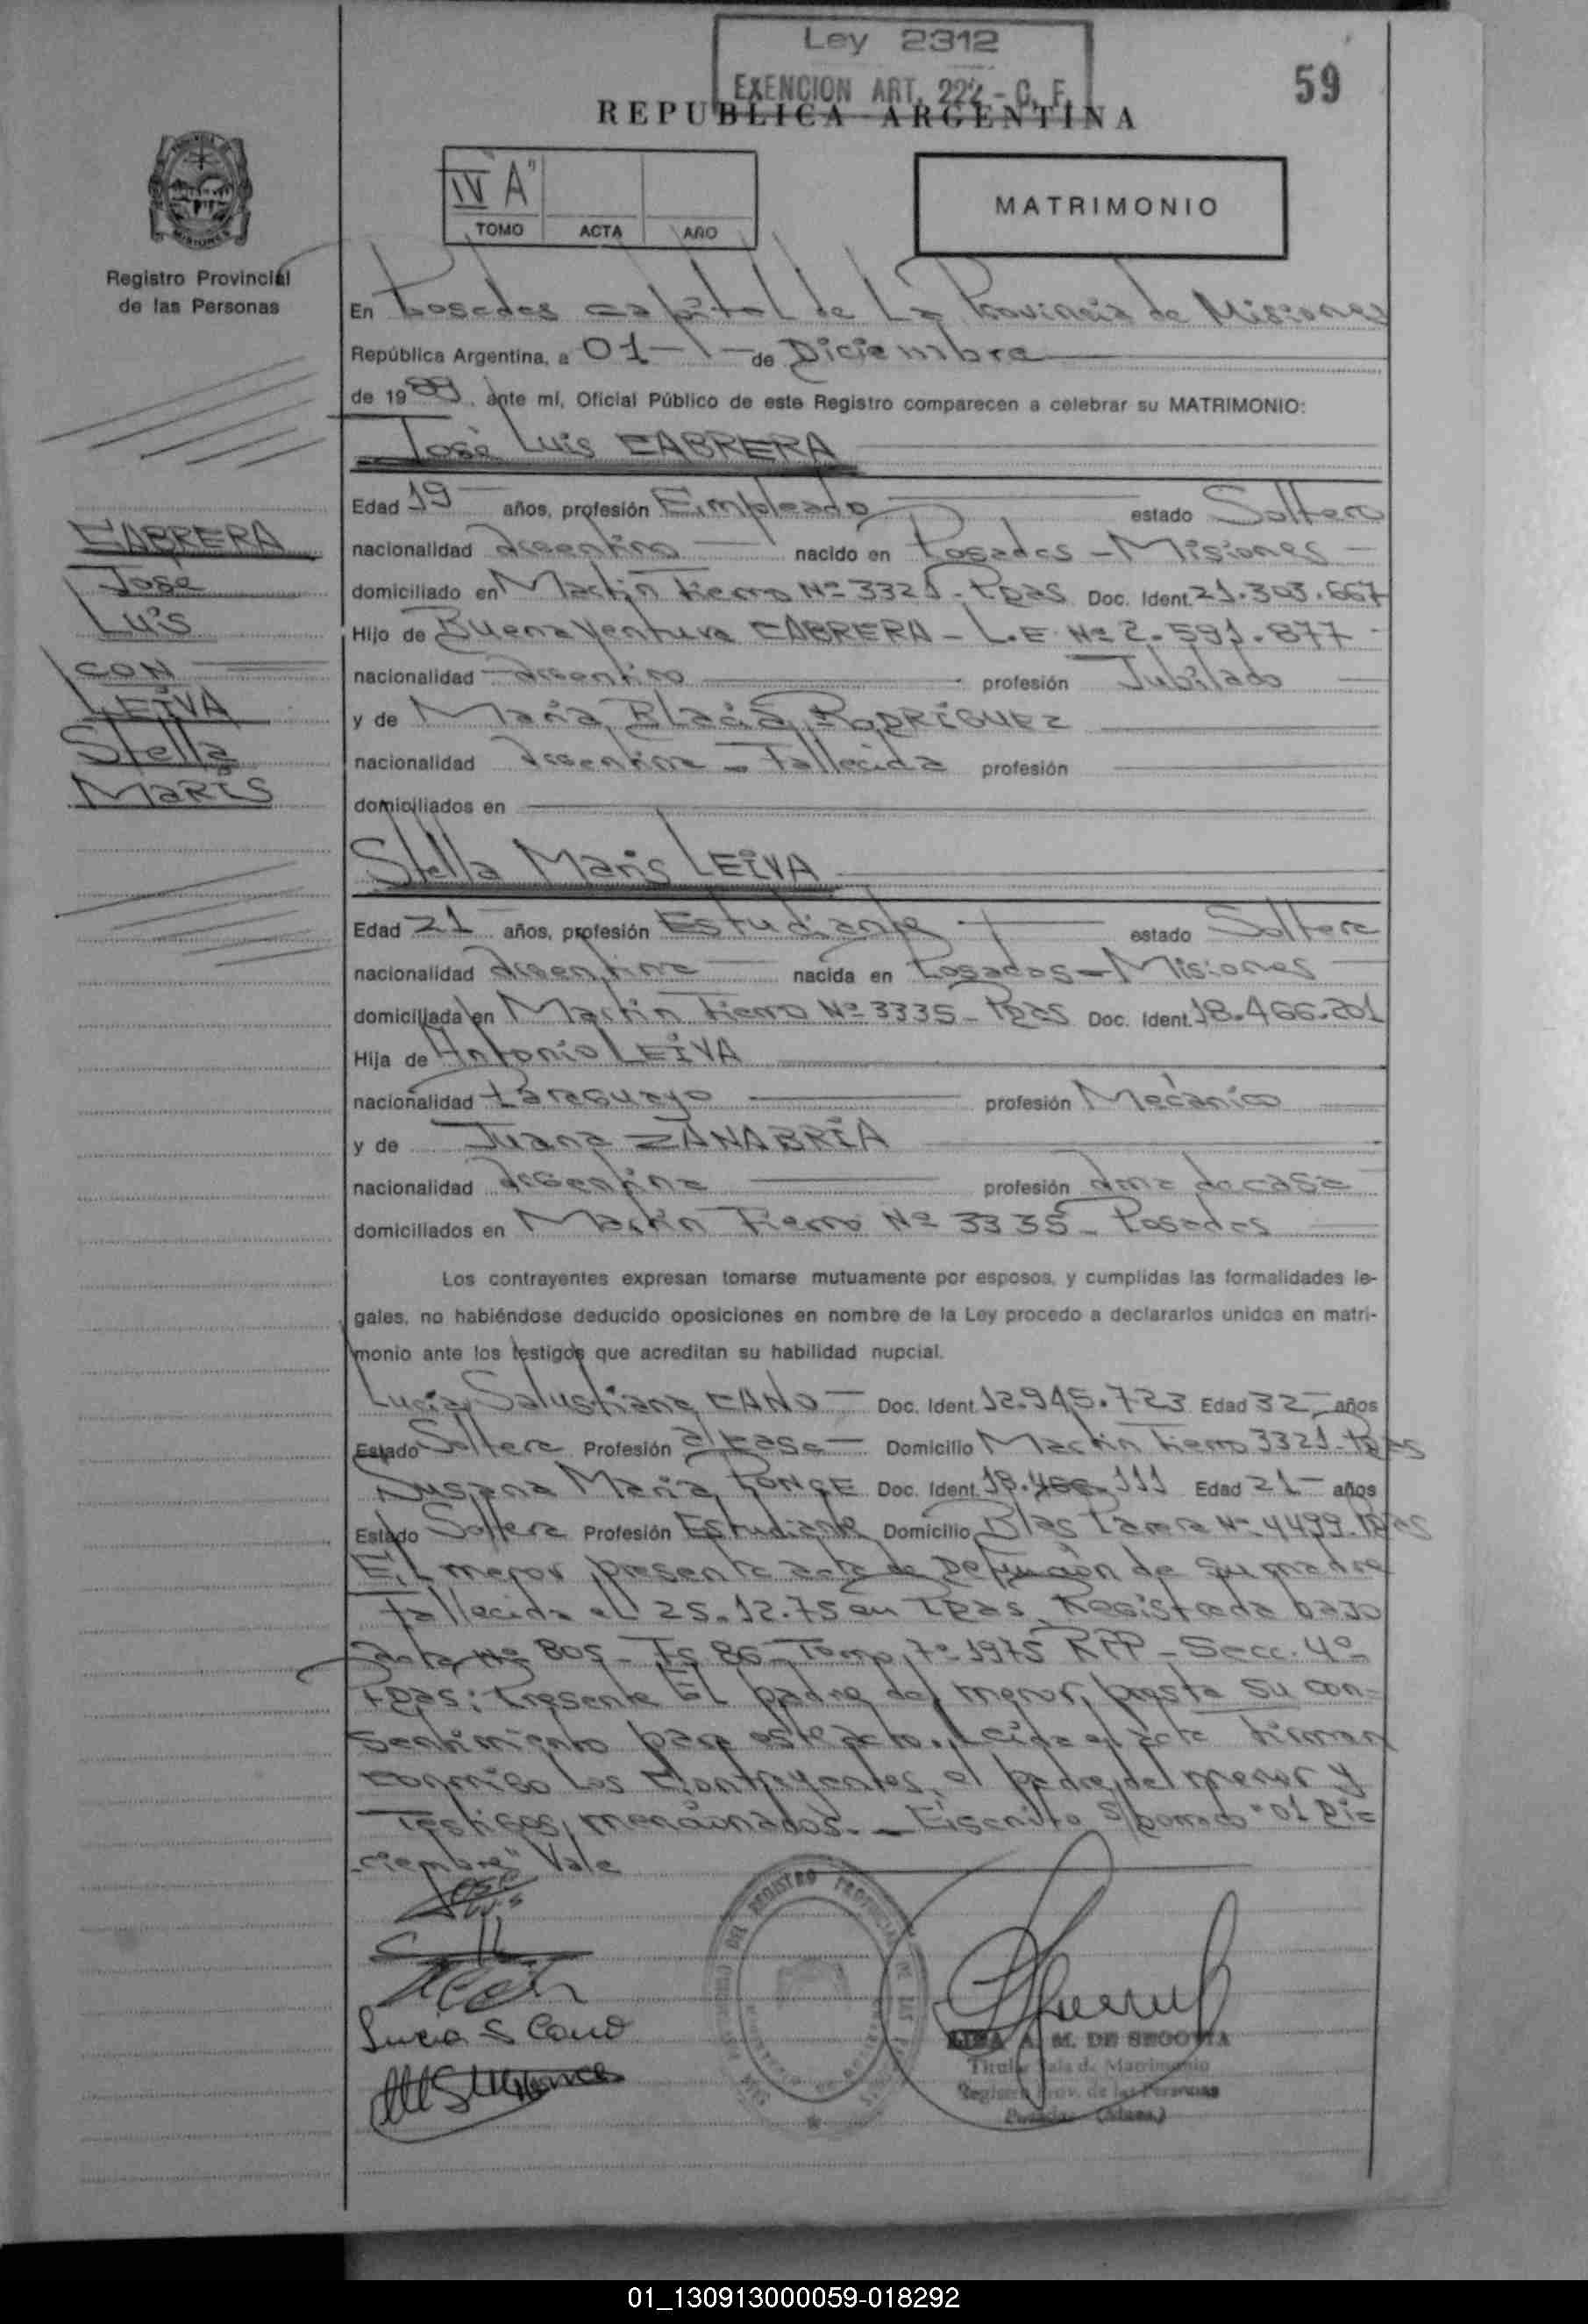 Ley 2312
EXENCION ART. 222 - C. F.
59
REPUBLICA ARGENTINA
IV "A"
TOMO ACTA AÑO
MATRIMONIO
MISIONES
Registro Provincial
de las Personas
En Posadas capital de La Provincia de Misiones
República Argentina, a 01 - de Diciembre
de 1989, ante mí, Oficial Público de este Registro comparecen a celebrar su MATRIMONIO:
José Luis CABRERA
Edad 19 años, profesión Empleado estado Soltero
nacionalidad Argentino nacido en Posadas - Misiones -
domiciliado en Martin Fierro Nº 3321 - Pdas Doc. Ident. 21.303.667
Hijo de Buenaventura CABRERA - L.E. Nº 2.591.877 -
nacionalidad Argentino profesión Jubilado
y de Maria Blacia RODRIGUEZ
nacionalidad Argentina - Fallecida profesión
domiciliados en
Stella Maris LEIVA
Edad 21 años, profesión Estudiante estado Soltera
nacionalidad Argentina nacida en Posadas - Misiones
domiciliada en Martin Fierro Nº 3335 - Pdas Doc. Ident. 18.466.201
Hija de Antonio LEIVA
nacionalidad Paraguayo profesión Mecánico
y de Juana ZANABRIA
nacionalidad Argentina profesión Ama de casa
domiciliados en Martin Fierro Nº 3335 - Posadas
Los contrayentes expresan tomarse mutuamente por esposos, y cumplidas las formalidades le-
gales, no habiéndose deducido oposiciones en nombre de la Ley procedo a declararlos unidos en matri-
monio ante los testigos que acreditan su habilidad nupcial.
Lucia Salustiana CANO - Doc. Ident. 12.945.723 Edad 32 - años
Estado Soltera Profesión a/casa - Domicilio Martin Fierro 3321 - Pdas
Susana Maria PONCE Doc. Ident. 18.466.111 Edad 21 - años
Estado Soltera Profesión Estudiante Domicilio Blas Parera Nº 4499 - Pdas
El menor presenta acta de Defunción de su madre
fallecida el 25.12.75 en Pdas, Registrada bajo
acta Nº 805 - Fs 86 - Tomo 7º 1975 RPP - Secc. 4º
Pdas: Presente El padre del menor, presta su con=
sentimiento para este acto. Leida el acta firman
conmigo Los Contrayentes, el padre del menor y
Testigos mencionados. - Escrito s/borrado "01 Di=
ciembre" Vale
CABRERA
Jose
Luis
CON
LEIVA
Stella
MARIS
Lucia S Cano
DEL REGISTRO PROVINCIAL DE LAS PERSONAS
LINA A. M. DE SEGOVIA
Titular Sala de Matrimonio
Registro Prov. de las Personas
Posadas (Mnes.)
01_130913000059-018292